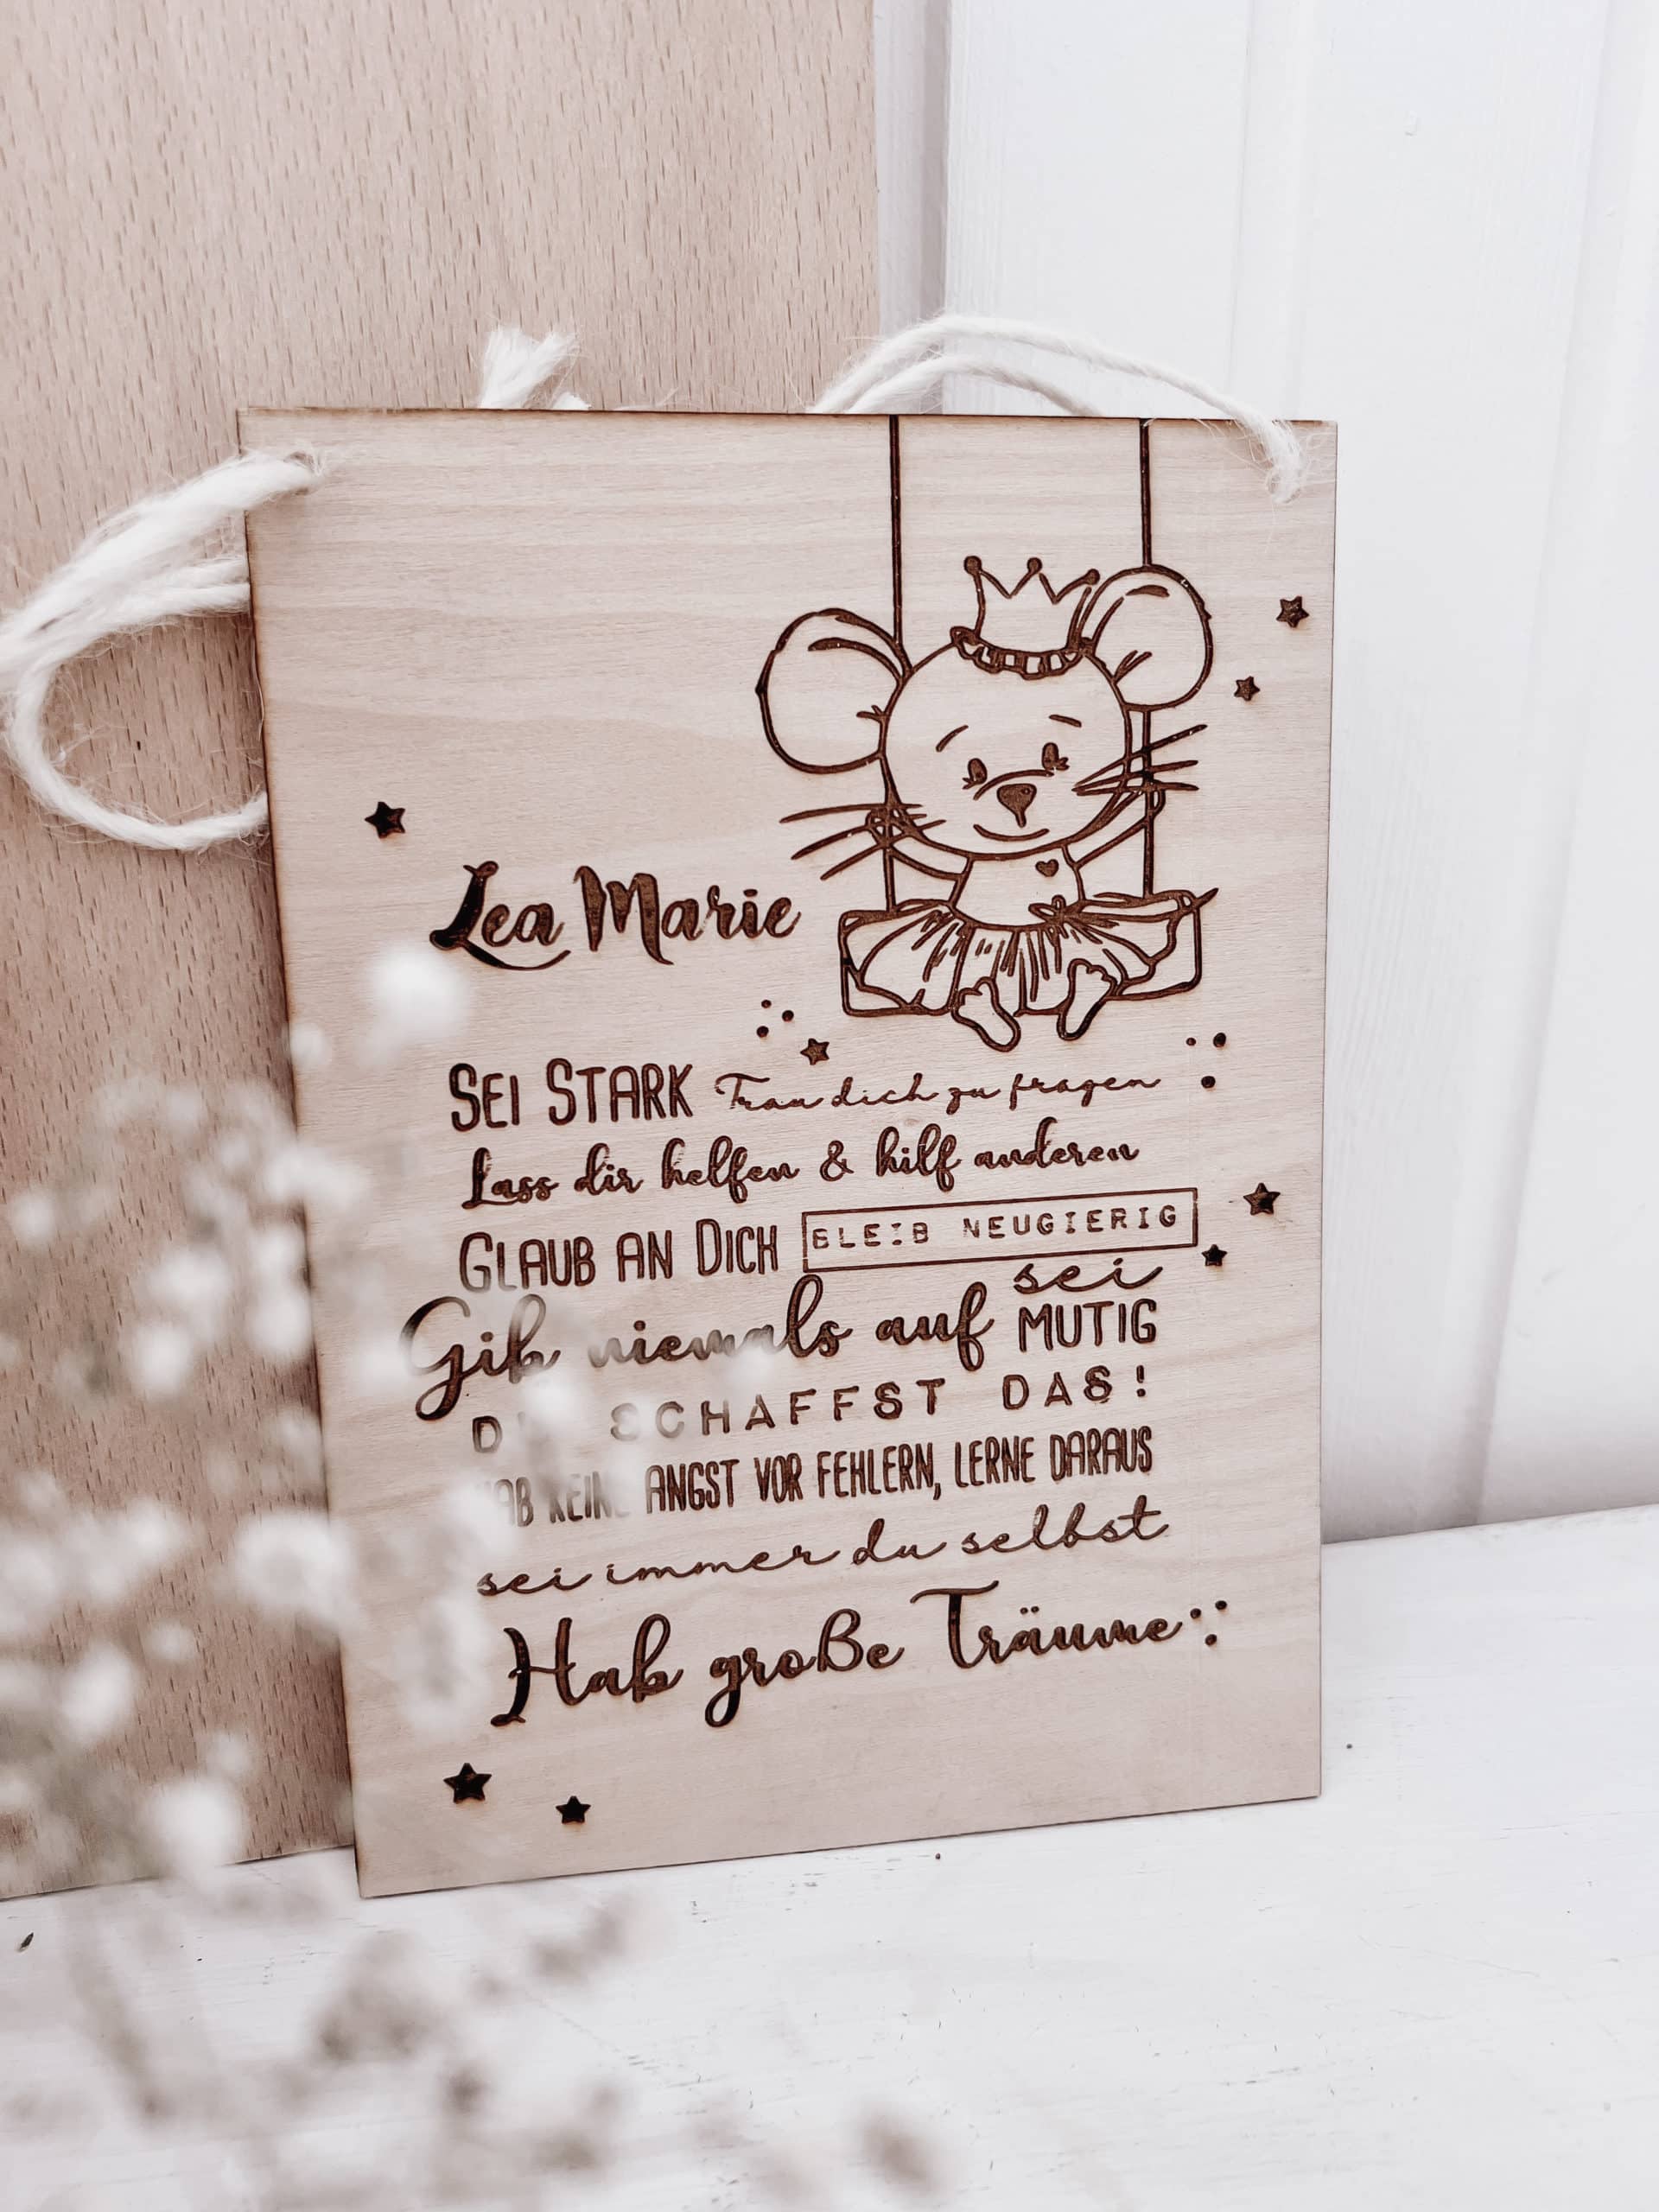 Lea Marie
SEI STARK Trau dich zu fragen
Lass dir helfen & hilf anderen
GLAUB AN DICH BLEIB NEUGIERIG
Gib niemals auf sei MUTIG
DU SCHAFFST DAS!
HAB KEINE ANGST VOR FEHLERN, LERNE DARAUS
sei immer du selbst
Hab große Träume